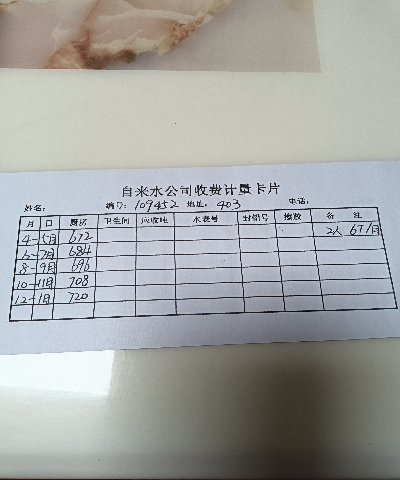 自来水公司收费计量卡片
姓名： 编号：109452 地址：403 电话：
月 日 厨房 卫生间 应收吨 水表号 封铅号 撤放 备 注
4-5月 672 2人 6T/月
6-7月 684
8-9月 696
10-11月 708
12-1月 720